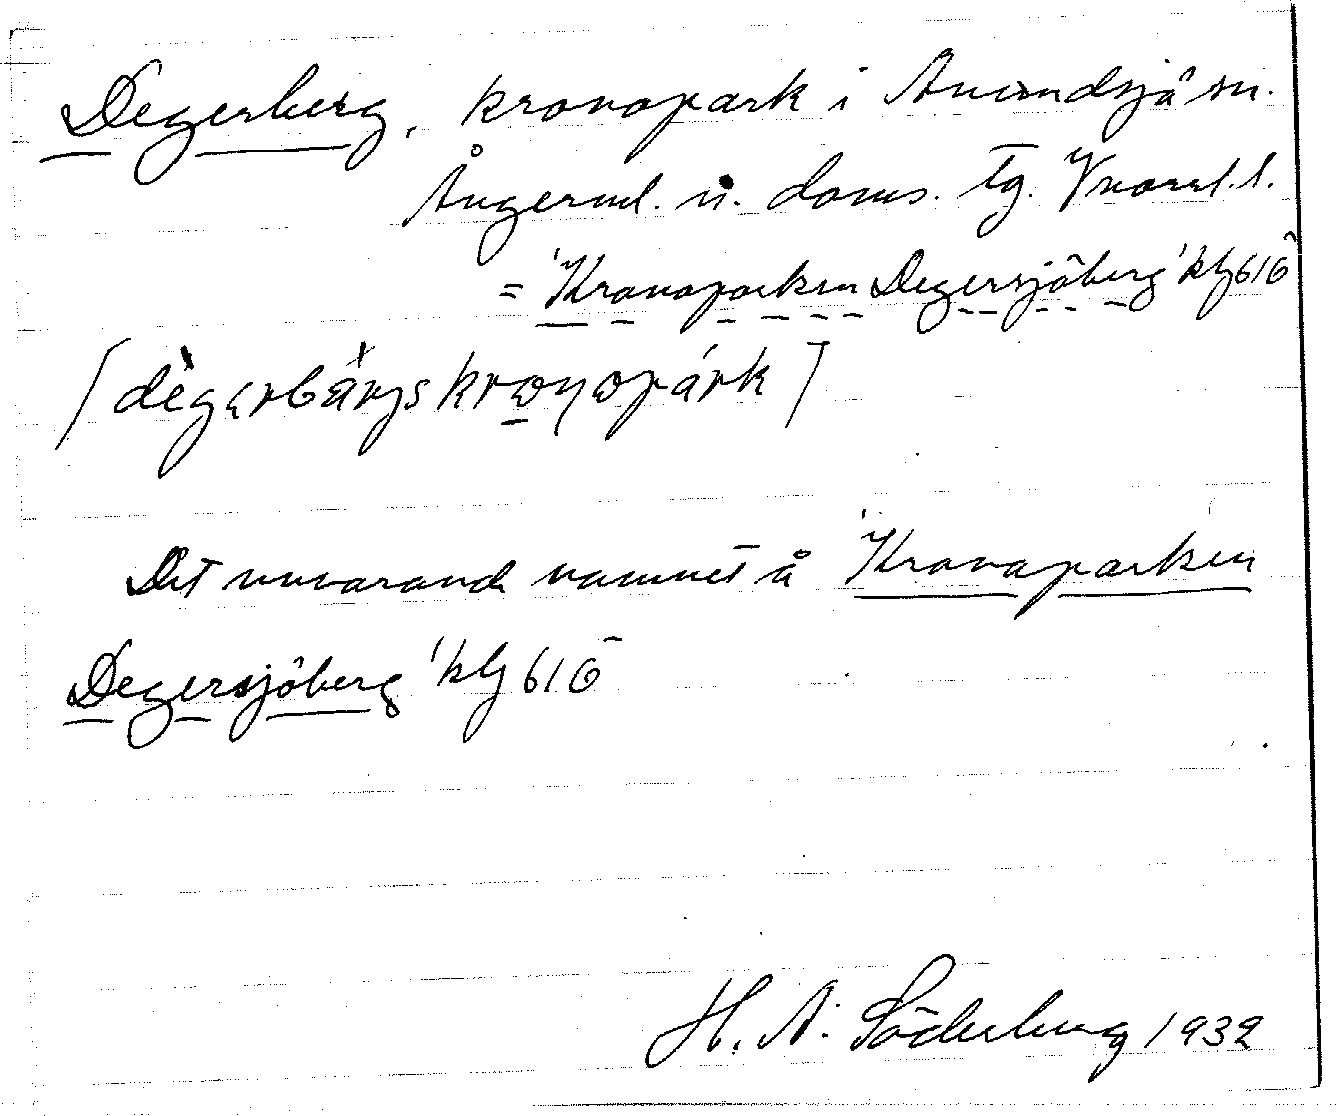 Degerberg, kronopark i Anundsjö sn.
Ångerml. n. doms. tg. Vnorrl. l.
= 'Kronoparken Degersjöberg' kbl 616
[dègərbärjs kronopárk]
Det nuvarande namnet å 'Kronoparken
Degersjöberg' kbl 616
H. A. Söderberg 1932